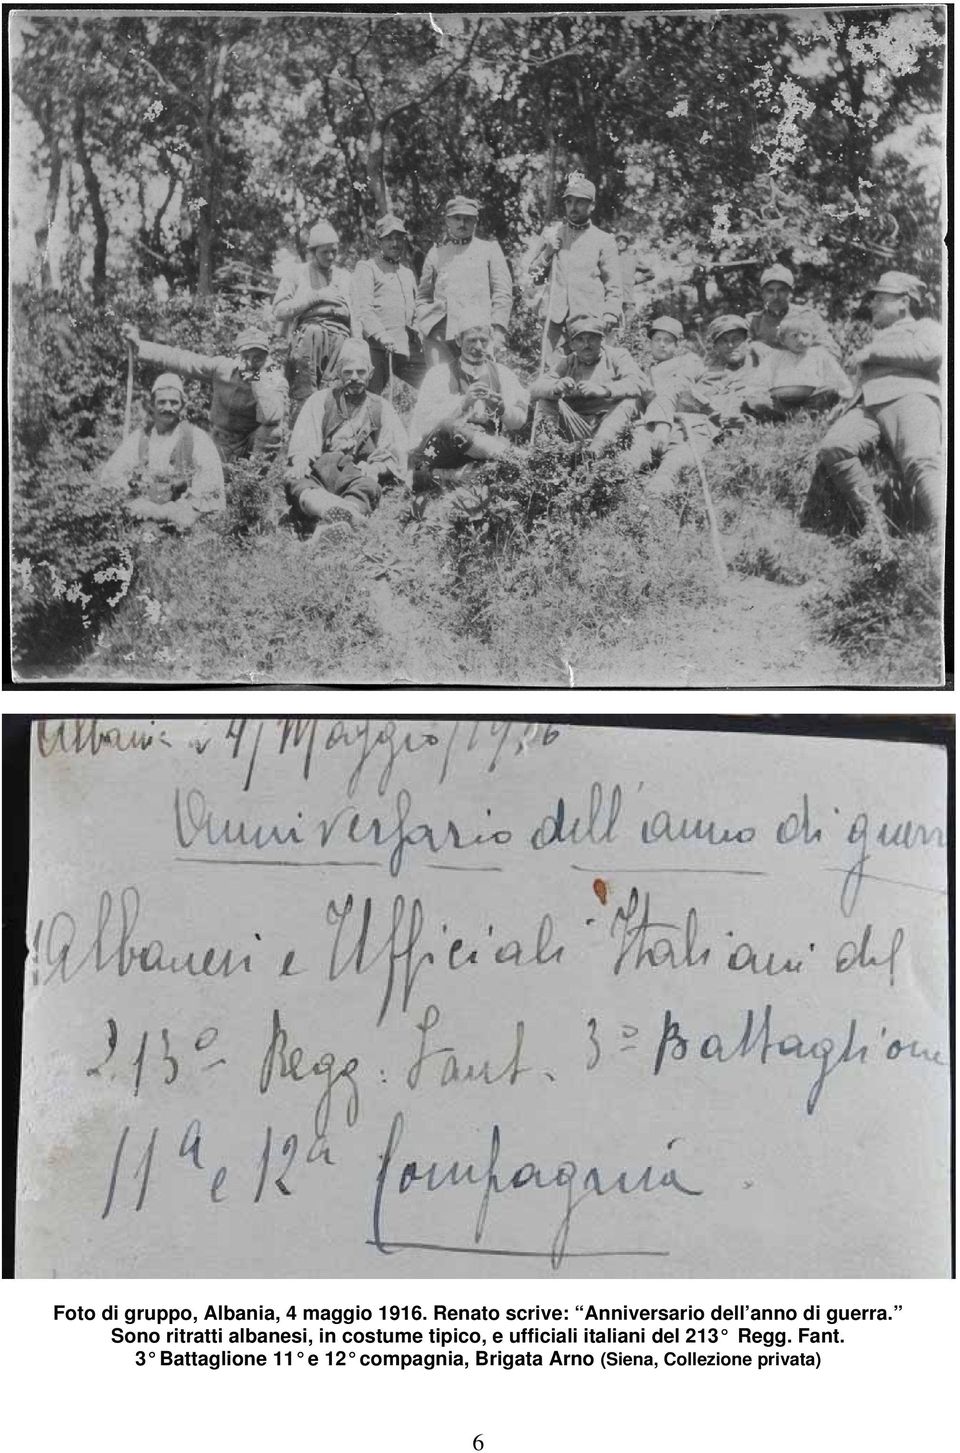 Albania 4/Maggio/1916
Anniversario dell'anno di guerr
Albanesi e Ufficiali Italiani del
213° Regg. Fant. 3° Battaglione
11ª e 12ª Compagnia.
Foto di gruppo, Albania, 4 maggio 1916. Renato scrive: “Anniversario dell’anno di guerra.”
Sono ritratti albanesi, in costume tipico, e ufficiali italiani del 213° Regg. Fant.
3° Battaglione 11° e 12° compagnia, Brigata Arno (Siena, Collezione privata)
6